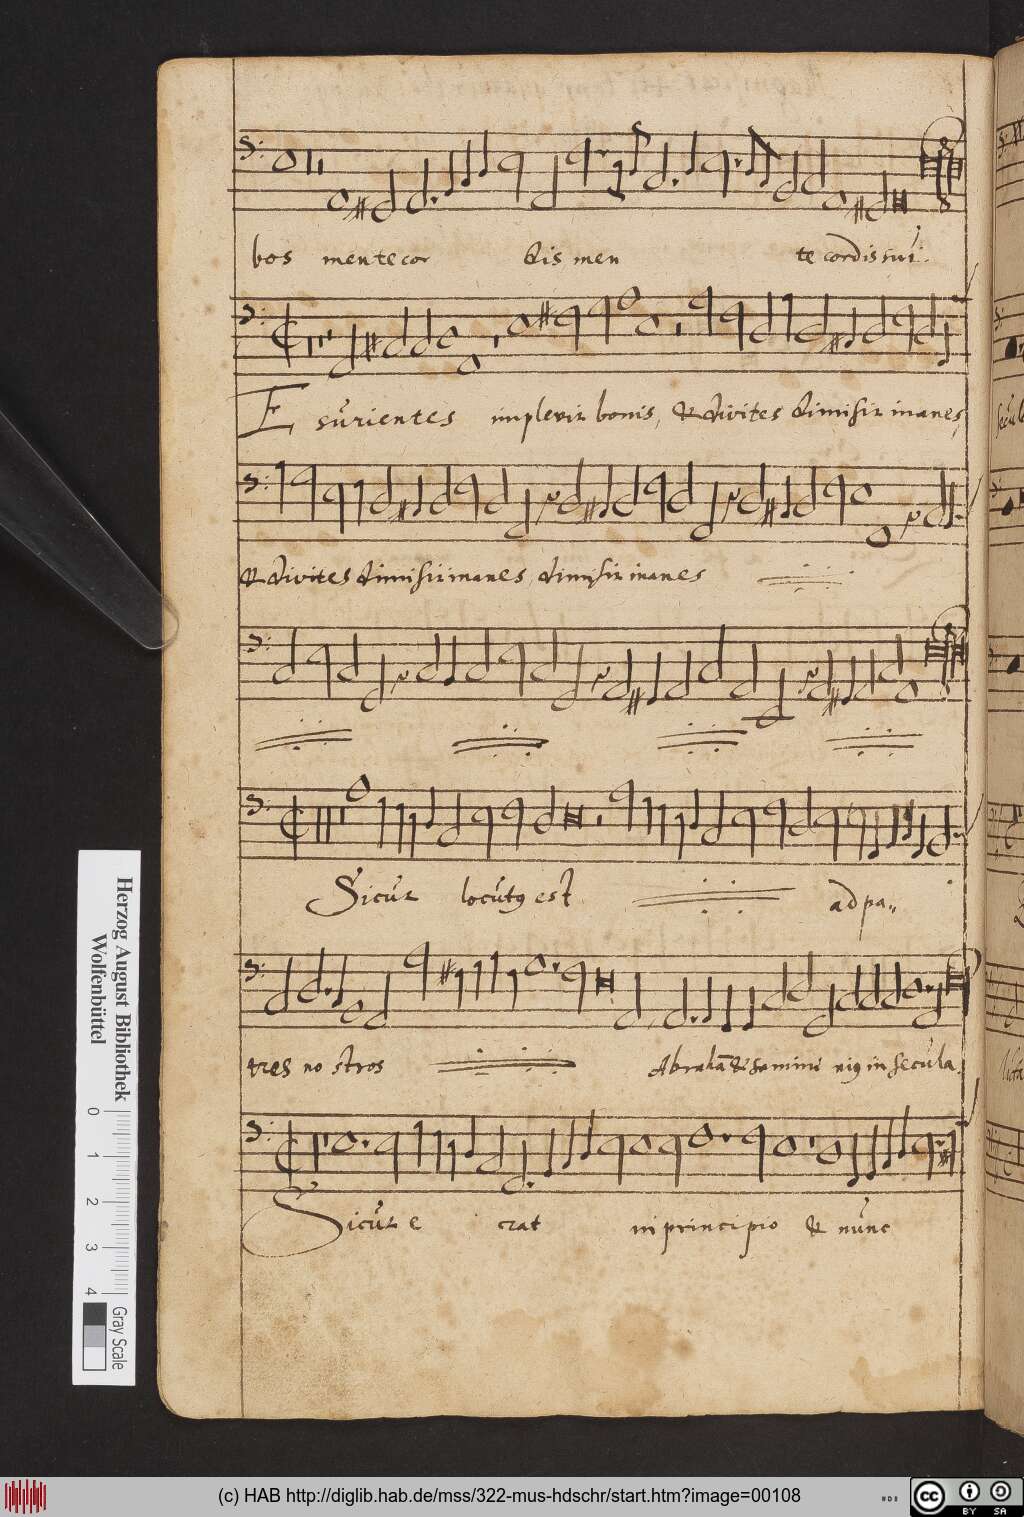 bos mente cor dis men te cordis sui.
Esurientes implevit bonis, & divites dimisit inanes,
& divites dimisit inanes, dimisit inanes
Sicut locutq est ad pa„
tres nostros Abrahā & semini eiq in secula.
Sicut e rat in principio & nunc
Herzog August Bibliothek
Wolfenbüttel
0 1 2 3 4
Gray Scale
(c) HAB http://diglib.hab.de/mss/322-mus-hdschr/start.htm?image=00108
cc BY SA